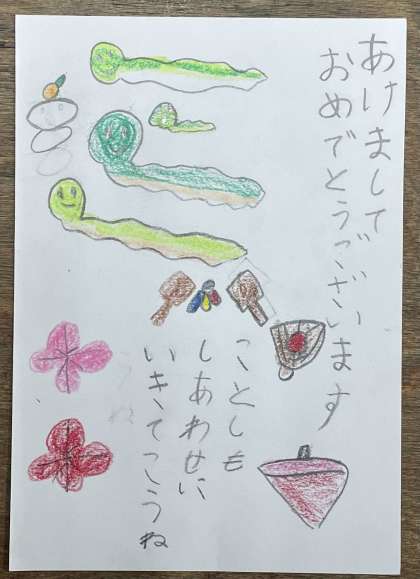 あけまして
おめでとうございます
ことしも
しあわせに
いきてこうね